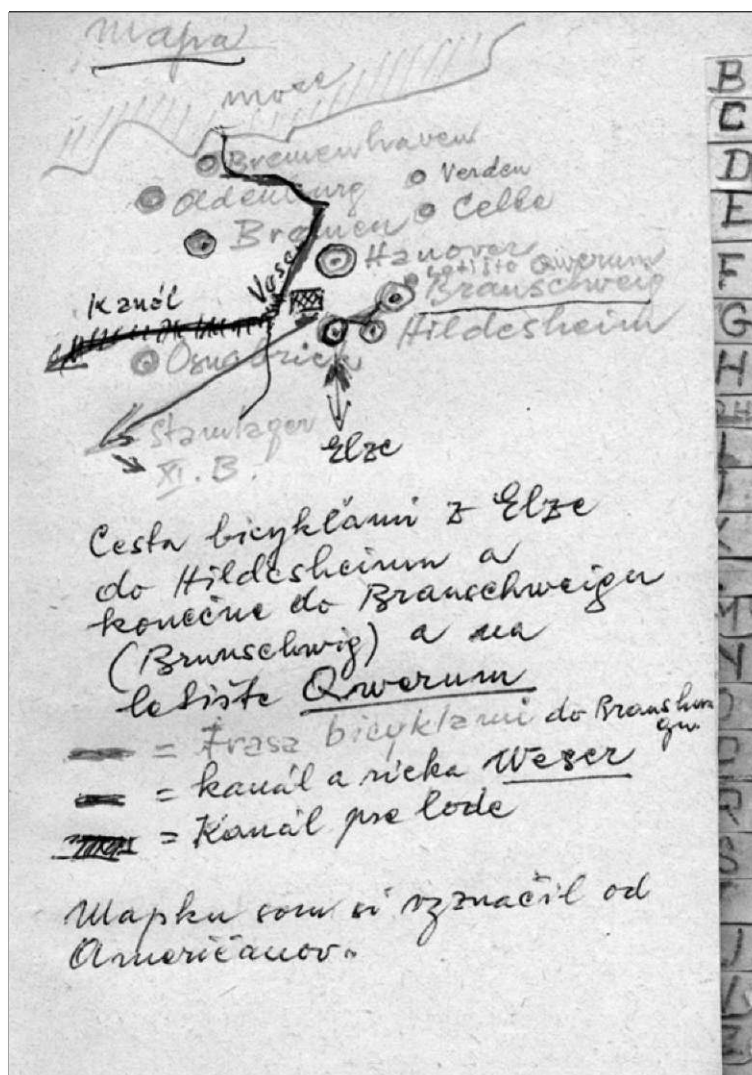 Mapa
more
Bremenhaven
Verden
Oldenburg
Celle
Bremen
Hanover
Letište Qwerum
Branschweig
Kanál
Veser
Hildesheim
Osnabrick
Stamlager
XI. B.
Elze
Cesta bicyklami z Elze
do Hildesheimu a
konečne do Branschweigu
(Brunschwig) a na
letište Qwerum
= Trasa bicyklami do Branshwei
gu.
= kanál a rieka Weser
= Kanál pre lode
Mapku som si vyznačil od
Američanov.
B
C
D
E
F
G
H
CH
I
J
K
M
N
O
P
R
S